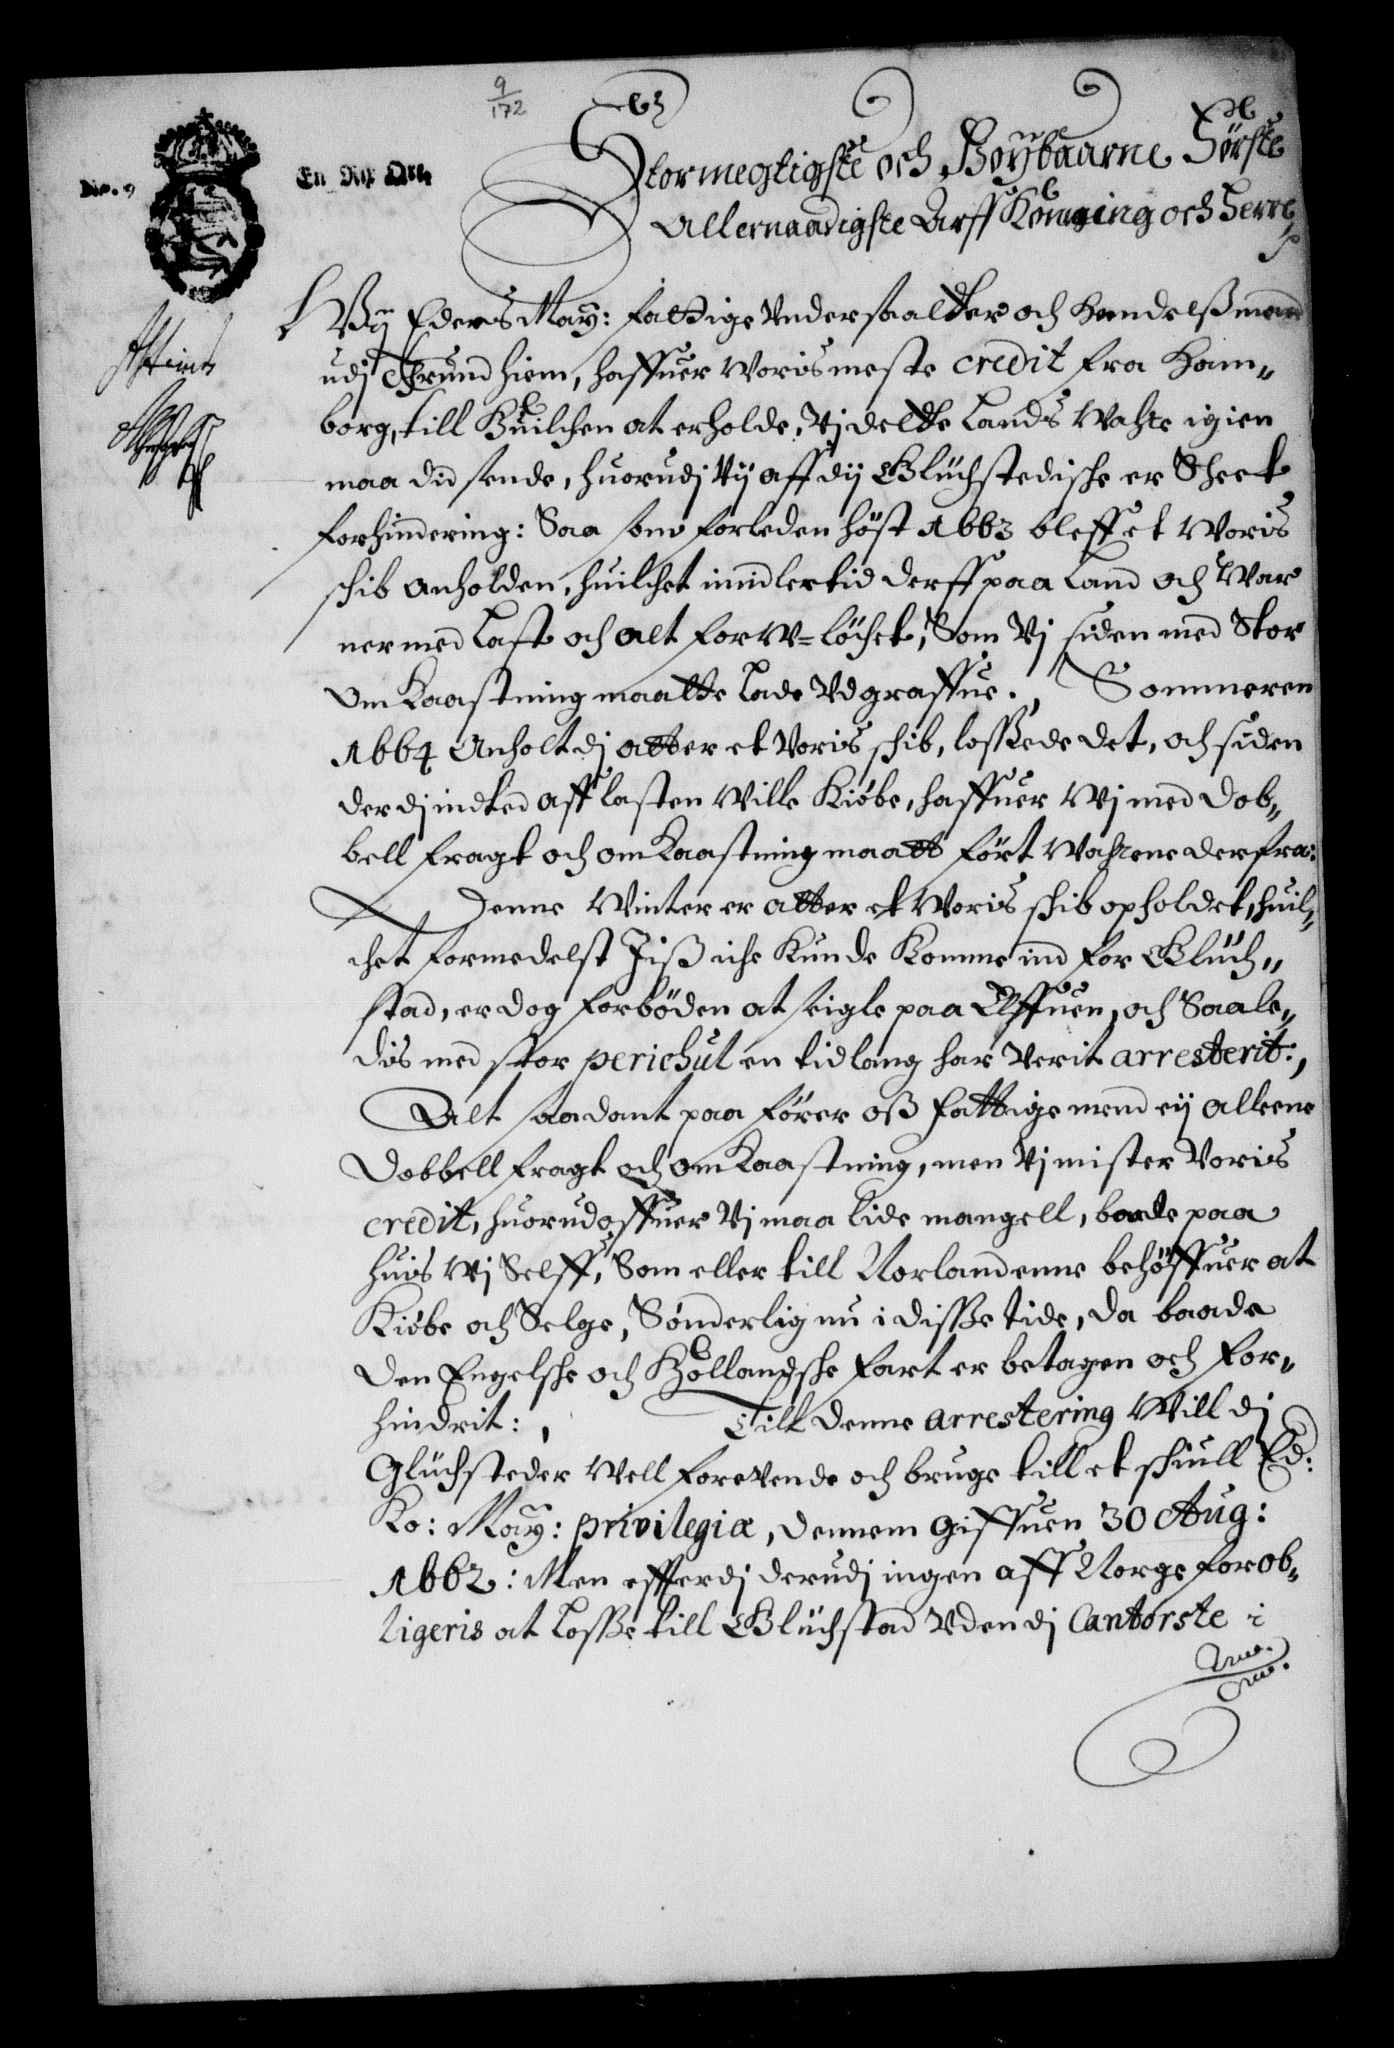 9
172
En Rix Ort
Stormegtigste och Høybaarne Første
Allernaadigste Arff Konning och Herre
Wij Eders May: fattige Vndersaatter och Handelsmend
udj Trundhiem, haffuer Woris meste credit fra Ham„
borg, till Huilchen at erholde, Vj dette Lands Wahre igien
maa did sende, huorudj Vij aff dij Glüchstedische er Skeet
forhindering: Saa som forleden höst 1663 bleff et Woris
skib anholden, huilchet imidlertid dreff paa Land och War
ner med Last och alt forw=löchet, Som Vj siden med Stor
Om Kaastning maatte Lade Vdgraffue. Sommeren
1664 Anholt dj atter et Voris skib, lossede det, och siden
der dj indted aff lasten Wille Kiöbe, haffuer Wj med Dob„
bell fragt och om Kaastning maatt fört Wahrene derfra:
Denne Winter er atter et Woris skib opholdet, huil„
chet formedelst Jiss iche Kunde Komme ind for Glüch„
stad, er dog forböden at seigle paa Elffuen, och Saale„
dis med stor perichul en tidlang har Verit arresterit:,
Alt saadant paa förer oss fattige mend eij alleene
Dobbell fragt och om Kaastning, men Vj mister Voris
credit, huorudoffuer Vj maa lide mangell, baade paa
huis Wj Selff, Som eller till Norlandenne behöffuer at
Kiöbe och Selge, Sønderlig nu i disse tide, da baade
den Engelske och Hollandske fart er betagen och for„
hindrit:, Till denne arrestering Will dj
Glüchsteder Well forevende och bruge till et skiull Ed:
Ko: May: privilegiæ, dennem Giffuen 30 Aug:
1662: Men efferdj derudj ingen aff Norge forob„
ligeris at Losse till Glüchstad Vden dj Cantorste i